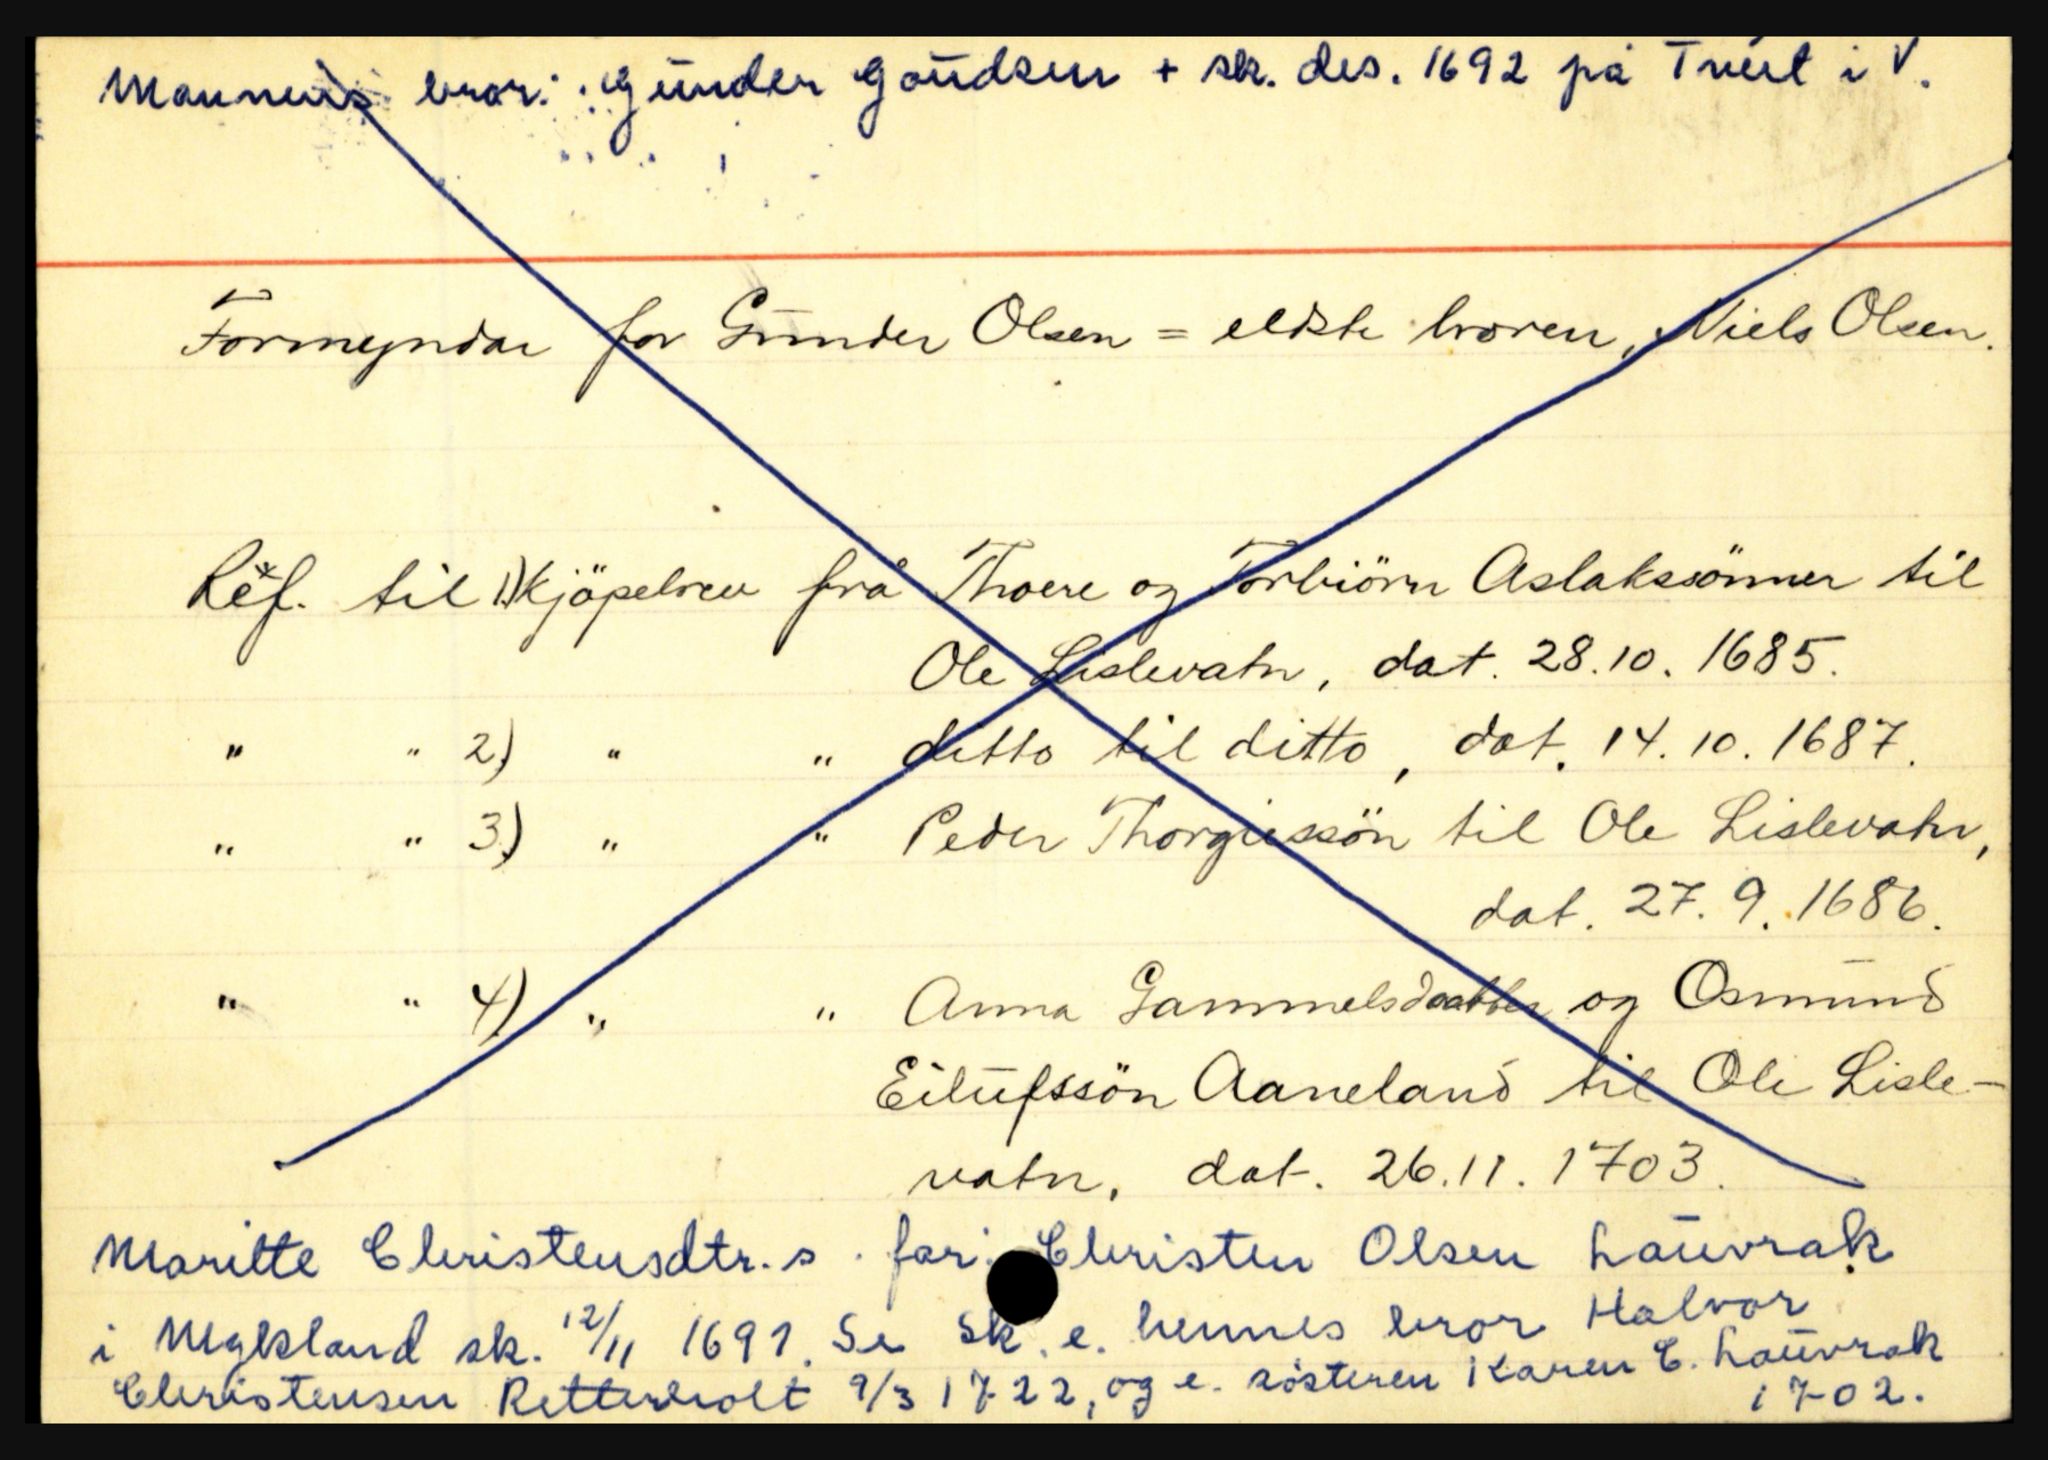 Mannens bror: Günder Goüdsen + sk. des. 1692 på Tveit i V.
Formyndar for Günder Olsen = eldste broren, Niels Olsen.
Ref. til 1) kjöpebrev frå Thoere og Torbiörn Aslakssönner til
Ole Lislevatn, dat. 28.10. 1685.
" " 2) " " ditto til ditto, dat. 14.10. 1687.
" " 3) " " Peder Thorgiussön til Ole Lislevatn,
dat. 27. 9. 1686.
" " 4) " " Anna Gammelsdaatter og Osmünd
Eilüfssön Aaneland til Ole Lisle-
vatn, dat. 26.11. 1703.
Maritte Christensdtr.s far: Christen Olsen Laüvrak
i Mykland sk. 12/11 1691. Se sk. e. hennes bror Halvor
Christensen Retterholt 9/3 1722, og e. södteren Karen C. Laüvrak
1702.